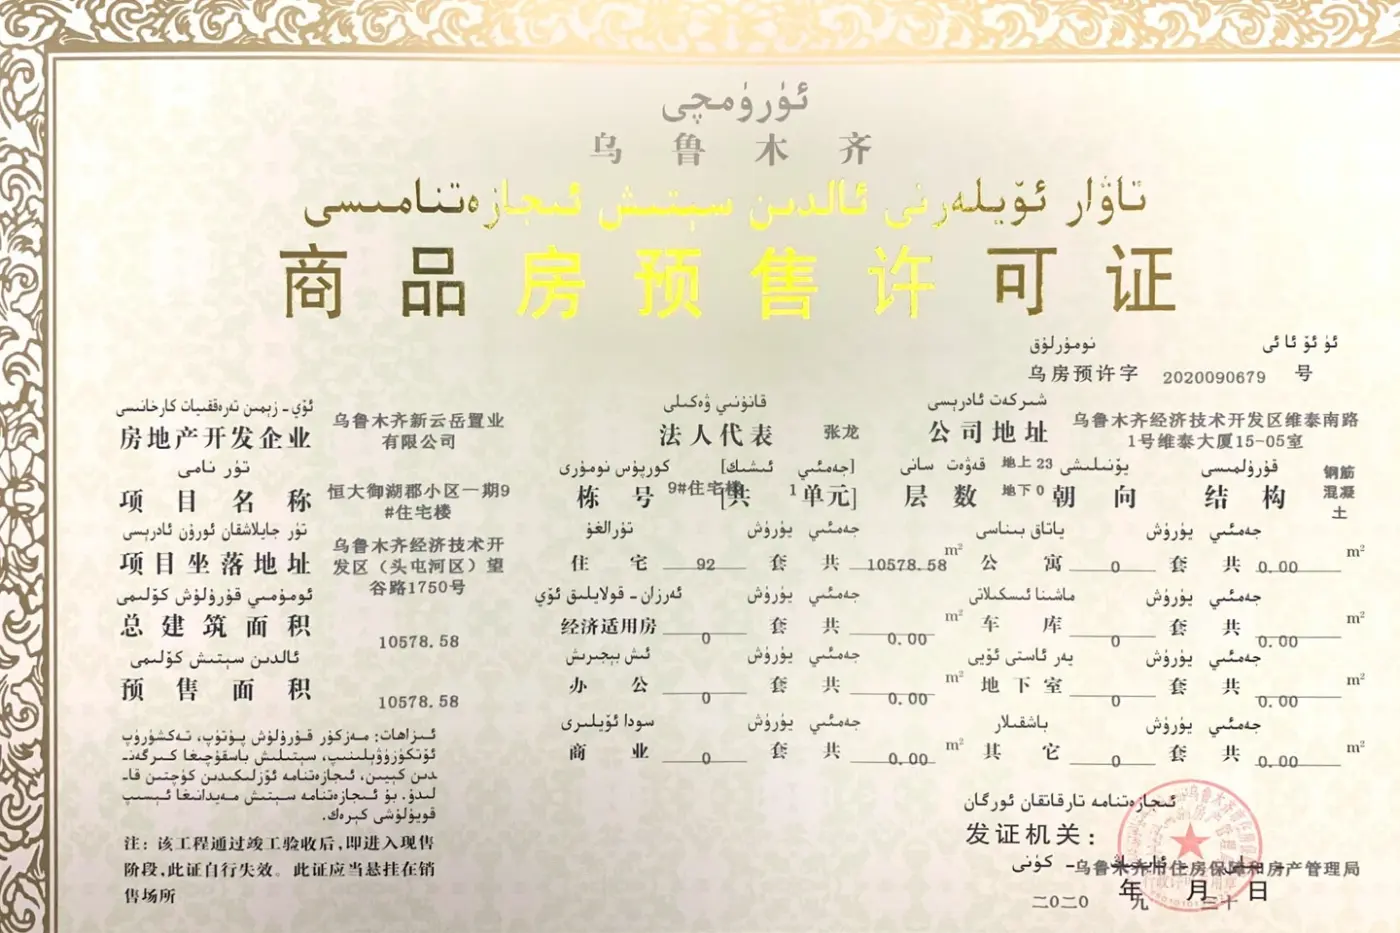 ئۈرۈمچى
乌鲁木齐
تاۋار ئۆيلەرنى ئالدىن سېتىش ئىجازەتنامىسى
商品房预售许可证
نومۇرلۇق ئۈ ئۆ ئا ئى
乌房预许字 2020090679 号
ئۆي - زېمىن تەرەققىيات كارخانىسى
房地产开发企业 乌鲁木齐新云岳置业有限公司
قانۇنىي ۋەكىلى
法人代表 张龙
شىركەت ئادرېسى
公司地址 乌鲁木齐经济技术开发区维泰南路1号维泰大厦15-05室
تۈر نامى
项目名称 恒大御湖郡小区一期9#住宅楼
كورپۇس نومۇرى [جەمئىي ئىشىك]
栋号 9#住宅楼 [共 1 单元]
قەۋەت سانى
层数 地上 23 地下 0
يۆنىلىشى
朝向
قۇرۇلمىسى
结构 钢筋混凝土
تۈر جايلاشقان ئورۇن ئادرېسى
项目坐落地址 乌鲁木齐经济技术开发区（头屯河区）望谷路1750号
تۇرالغۇ يۈرۈش جەمئىي
住宅 92 套 共 10578.58 m²
ياتاق بىناسى يۈرۈش جەمئىي
公寓 0 套 共 0.00 m²
ئومۇمىي قۇرۇلۇش كۆلىمى
总建筑面积 10578.58
ئەرزان - قولايلىق ئۆي يۈرۈش جەمئىي
经济适用房 0 套 共 0.00 m²
ماشىنا ئىسكىلاتى يۈرۈش جەمئىي
车库 0 套 共 0.00 m²
ئالدىن سېتىش كۆلىمى
预售面积 10578.58
ئىش بېجىرىش يۈرۈش جەمئىي
办公 0 套 共 0.00 m²
يەر ئاستى ئۆيى يۈرۈش جەمئىي
地下室 0 套 共 0.00 m²
سودا ئۆيلىرى يۈرۈش جەمئىي
商业 0 套 共 0.00 m²
باشقىلار يۈرۈش جەمئىي
其它 0 套 共 0.00 m²
ئىزاھات: مەزكۇر قۇرۇلۇش پۈتۈپ، تەكشۈرۈپ
ئۆتكۈزۈۋېلىنىپ، سېتىلىش باسقۇچىغا كىرگەن-
دىن كېيىن، ئىجازەتنامە ئۆزلىكىدىن كۈچتىن قا-
لىدۇ. بۇ ئىجازەتنامە سېتىش مەيدانىغا ئېسىپ
قويۇلۇشى كېرەك.
注：该工程通过竣工验收后，即进入现售
阶段，此证自行失效。此证应当悬挂在销
售场所
ئىجازەتنامە تارقاتقان ئورگان
发证机关：
乌鲁木齐市住房保障和房产管理局
二〇二〇 年 九 月 三十 日